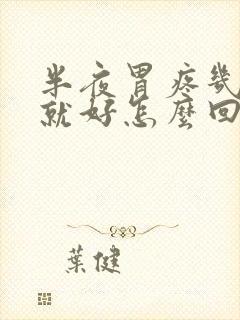 半夜胃疼幾
就好怎麼回
葉健